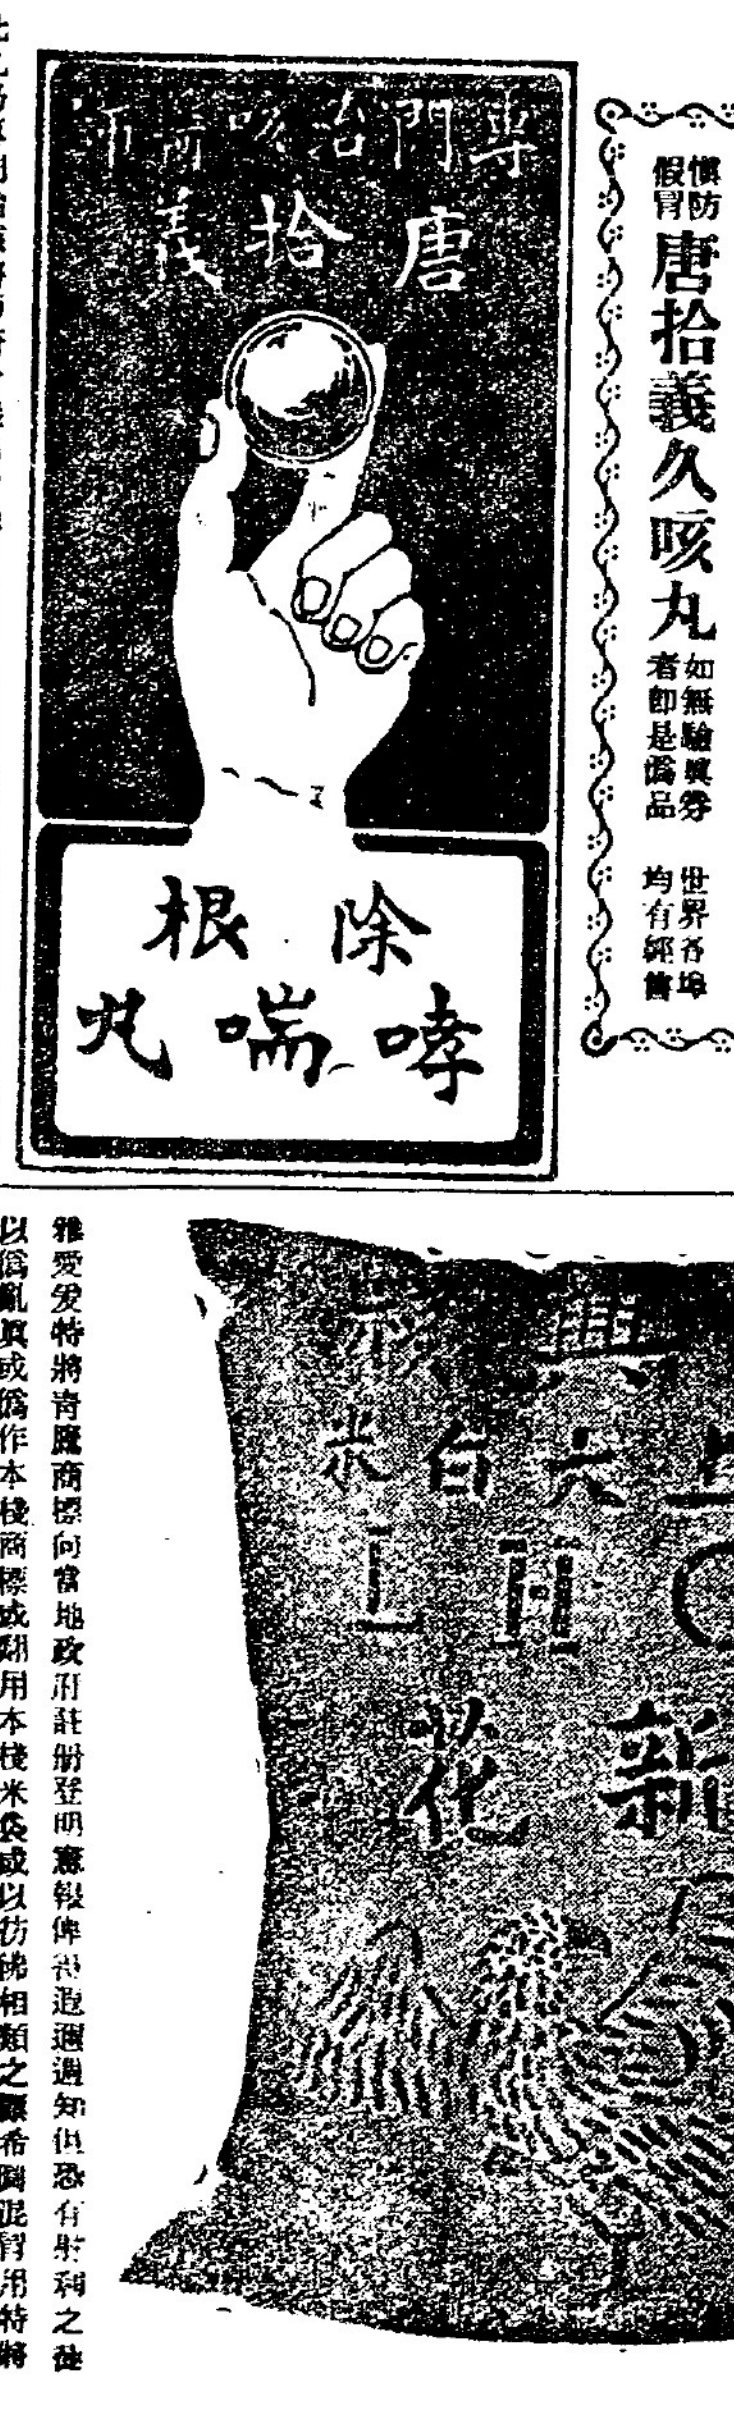 慎防假冒
唐拾義久咳丸
如無驗真券者即是偽品
世界各埠均有經售
專門治咳
唐拾義
除根
哮喘丸
上六白米
新花
雅愛爰特將青鷹商標向當地政府註册登明憲報俾得遐邇週知但恐有射利之徒
以偽亂真或偽作本棧商標或翻用本棧米袋或以彷彿相類之標希圖混冒用特將